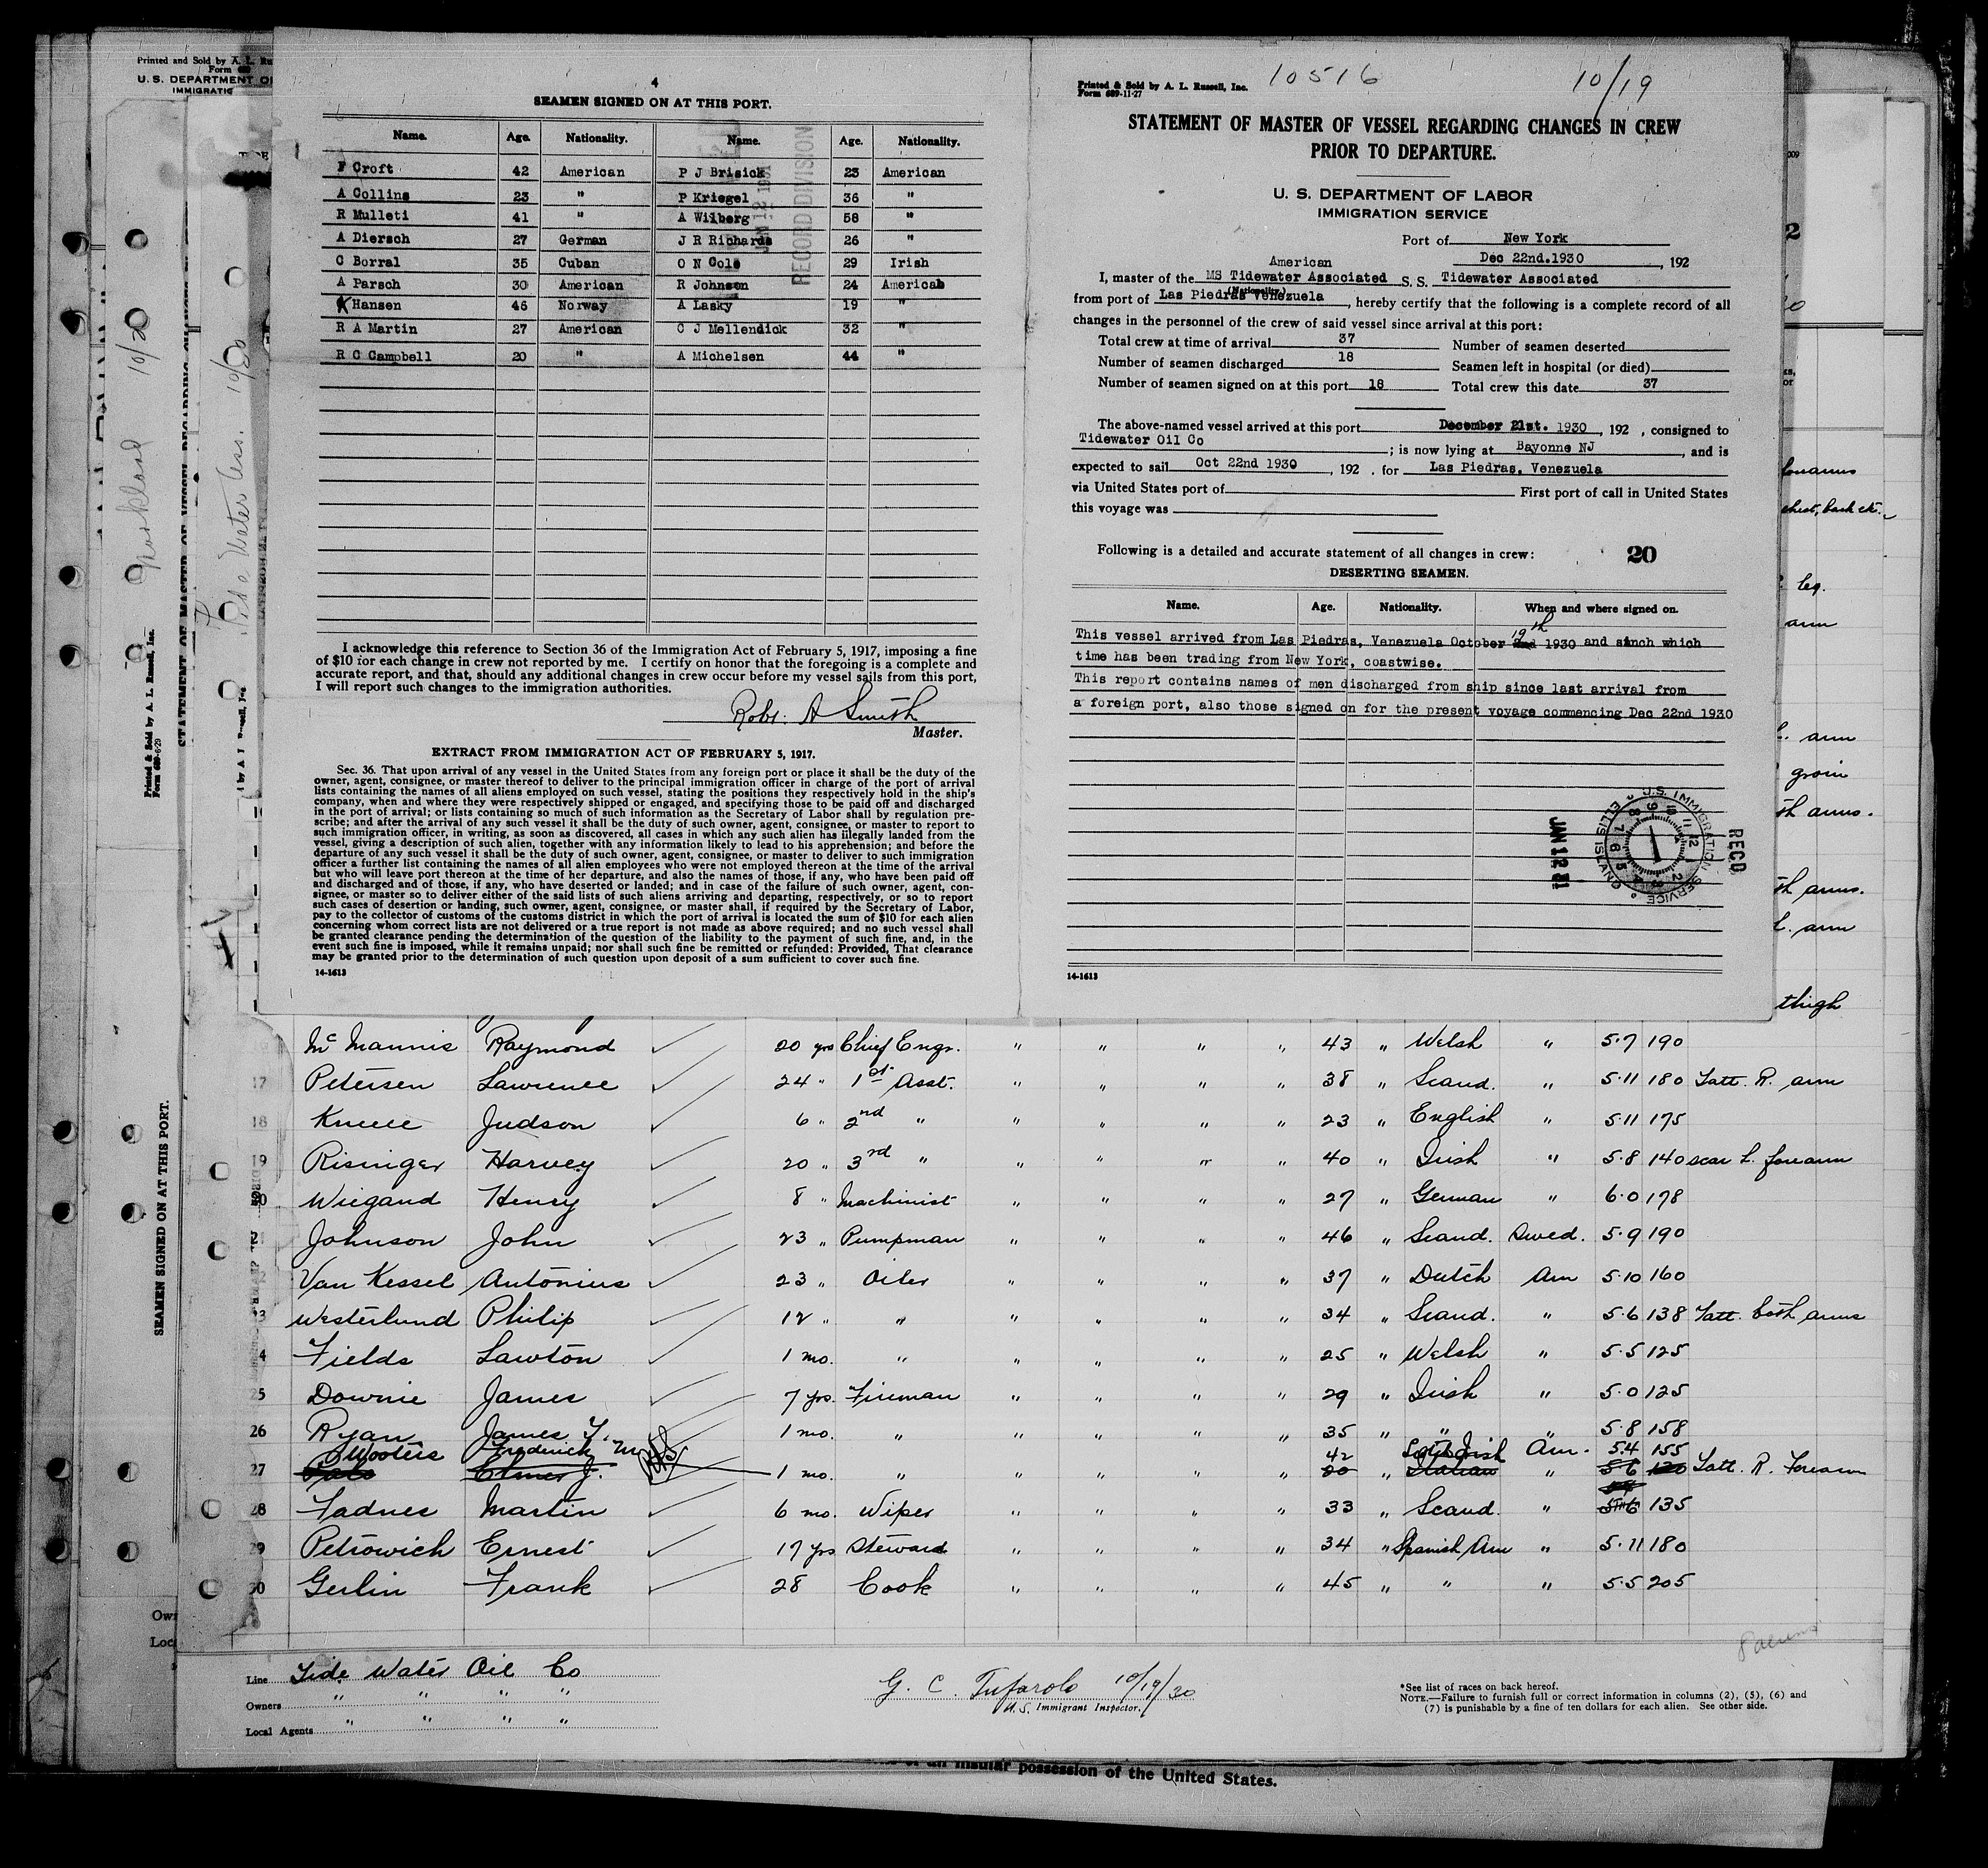 Printed and Sold by A. L.
Form
U. S. DEPARTMENT OF
IMMIGRATIO
4
SEAMEN SIGNED ON AT THIS PORT.
Name. Age. Nationality. Name. Age. Nationality.
F Croft 42 American P J Brisick 23 American
A Collins 23 " P Kriegel 36 "
R Mulleti 41 " A Wilberg 58 "
A Diersch 27 German J R Richards 26 "
C Borral 35 Cuban O N Cole 29 Irish
A Parsch 30 American R Johnson 24 American
K Hansen 46 Norway A Lasky 19 "
R A Martin 27 American C J Mellendick 32 "
R C Campbell 20 " A Michelsen 44 "
RECORD DIVISION
I acknowledge this reference to Section 36 of the Immigration Act of February 5, 1917, imposing a fine
of $10 for each change in crew not reported by me. I certify on honor that the foregoing is a complete and
accurate report, and that, should any additional changes in crew occur before my vessel sails from this port,
I will report such changes to the immigration authorities.
Robt. A Smith
Master.
EXTRACT FROM IMMIGRATION ACT OF FEBRUARY 5, 1917.
Sec. 36. That upon arrival of any vessel in the United States from any foreign port or place it shall be the duty of the
owner, agent, consignee, or master thereof to deliver to the principal immigration officer in charge of the port of arrival
lists containing the names of all aliens employed on such vessel, stating the positions they respectively hold in the ship's
company, when and where they were respectively shipped or engaged, and specifying those to be paid off and discharged
in the port of arrival; or lists containing so much of such information as the Secretary of Labor shall by regulation pre-
scribe; and after the arrival of any such vessel it shall be the duty of such owner, agent, consignee, or master to report to
such immigration officer, in writing, as soon as discovered, all cases in which any such alien has illegally landed from the
vessel, giving a description of such alien, together with any information likely to lead to his apprehension; and before the
departure of any such vessel it shall be the duty of such owner, agent, consignee, or master to deliver to such immigration
officer a further list containing the names of all alien employees who were not employed thereon at the time of the arrival
but who will leave port thereon at the time of her departure, and also the names of those, if any, who have been paid off
and discharged and of those, if any, who have deserted or landed; and in case of the failure of such owner, agent, con-
signee, or master so to deliver either of the said lists of such aliens arriving and departing, respectively, or so to report
such cases of desertion or landing, such owner, agent, consignee, or master shall, if required by the Secretary of Labor,
pay to the collector of customs of the customs district in which the port of arrival is located the sum of $10 for each alien
concerning whom correct lists are not delivered or a true report is not made as above required; and no such vessel shall
be granted clearance pending the determination of the question of the liability to the payment of such fine, and, in the
event such fine is imposed, while it remains unpaid; nor shall such fine be remitted or refunded: Provided, That clearance
may be granted prior to the determination of such question upon deposit of a sum sufficient to cover such fine.
14-1613
Printed & Sold by A. L. Russell, Inc.
Form 689-11-27
10516 10/19
STATEMENT OF MASTER OF VESSEL REGARDING CHANGES IN CREW
PRIOR TO DEPARTURE.
U. S. DEPARTMENT OF LABOR
IMMIGRATION SERVICE
Port of New York
American Dec 22nd.1930, 192
I, master of the MS Tidewater Associated S. S. Tidewater Associated
(Nationality.)
from port of Las Piedras Venezuela, hereby certify that the following is a complete record of all
changes in the personnel of the crew of said vessel since arrival at this port:
Total crew at time of arrival 37 Number of seamen deserted
Number of seamen discharged 18 Seamen left in hospital (or died)
Number of seamen signed on at this port 18 Total crew this date 37
The above-named vessel arrived at this port December 21st. 1930, 192 , consigned to
Tidewater Oil Co ; is now lying at Bayonne NJ, and is
expected to sail Oct 22nd 1930, 192 . for Las Piedras, Venezuela
via United States port of First port of call in United States
this voyage was
Following is a detailed and accurate statement of all changes in crew: 20
DESERTING SEAMEN.
Name. Age. Nationality. When and where signed on.
This vessel arrived from Las Piedras, Venezuela October 19th 1930 and sinch which
time has been trading from New York, coastwise.
This report contains names of men discharged from ship since last arrival from
a foreign port, also those signed on for the present voyage commencing Dec 22nd 1930
U.S. IMMIGRATION SERVICE ELLIS ISLAND
JAN 12 31
RECD
14-1613
Mc Mannis Raymond 20 yrs Chief Engr. " " " " 43 " Welsh " 5·7 190
17 Petersen Lawrence 24 " 1st Asst. " " " " 38 " Scand. " 5·11 180 Tatt. R. arm
18 Kneee Judson 6 " 2nd " " " " " 23 " English " 5·11 175
19 Risinger Harvey 20 " 3rd " " " " " 40 " Irish " 5·8 140 scar L. forearm
20 Wiegand Henry 8 " Machinist " " " " 27 " German " 6·0 178
Johnson John 23 " Pumpman " " " " 46 " Scand. Swed. 5·9 190
Van Kessel Antonius 23 " Oiler " " " " 37 " Dutch Am 5·10 160
3 Westerlund Philip 12 " " " " " " 34 " Scand. " 5·6 138 Tatt. both arms
4 Fields Lawton 1 mo. " " " " " 25 " Welsh " 5·5 125
25 Downie James 7 yrs. Fireman " " " " 29 " Irish " 5·0 125
26 Ryan James T. 1 mo. " " " " " 35 " " " 5·8 158
Wooters Frederick M 42 Irish Am. 5.4 155
27 Elmer J. 1 mo. " " " " " 20 " Italian " 5·6 120 Tatt. R. Forearm
28 Fadnes Martin 6 mo. Wiper " " " " 33 " Scand. " 5·6 135
29 Petrowich Ernest 17 yrs Steward " " " " 34 " Spanish Am " 5·11 180
30 Gerlin Frank 28 Cook " " " " 45 " " " 5·5 205
Line Tide Water Oil Co
Owners " " " "
Local Agents " " " "
G. C. Tufarolo 10/19/30
U. S. Immigrant Inspector.
*See list of races on back hereof.
NOTE.—Failure to furnish full or correct information in columns (2), (5), (6) and
(7) is punishable by a fine of ten dollars for each alien. See other side.
insular possession of the United States.
SEAMEN SIGNED ON AT THIS PORT.
Printed & Sold by A. L. Russell, Inc.
Form 689-6-29
10/20
Tide Water Ass. 10/20
chest, back etc.
leg.
arm
L. arm
groin
arms.
arms.
L. arm
thigh